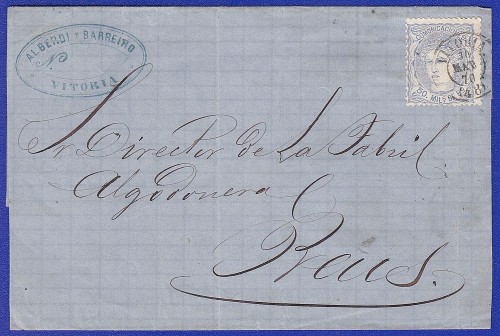 ALBERDI Y BARREIRO
VITORIA
COMUNICACIONES
50 MILS DE
VITORIA
MAR
70
Sr Director de La Fabril
Algodonera
Reus.